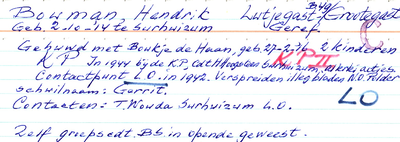 Bouman Hendrik Lutjegast-Grootegast
Geb. 2-10-14 te Surhuizum Geref.
Gehuwd met Boukje de Haan, geb. 27-2-36 2 kinderen
K.P. In 1944 bij de K.P, Cdt. Surhuizum,
K.P. II
Contactpunt L.O. in 1942. Verspreiden illeg. bladen N.O. Polder
schuilnaam: Gerrit.
LO
Contacten: T. Wouda Surhuizum L.O.
Zelf groepscdt. B.S. in opende geweest.